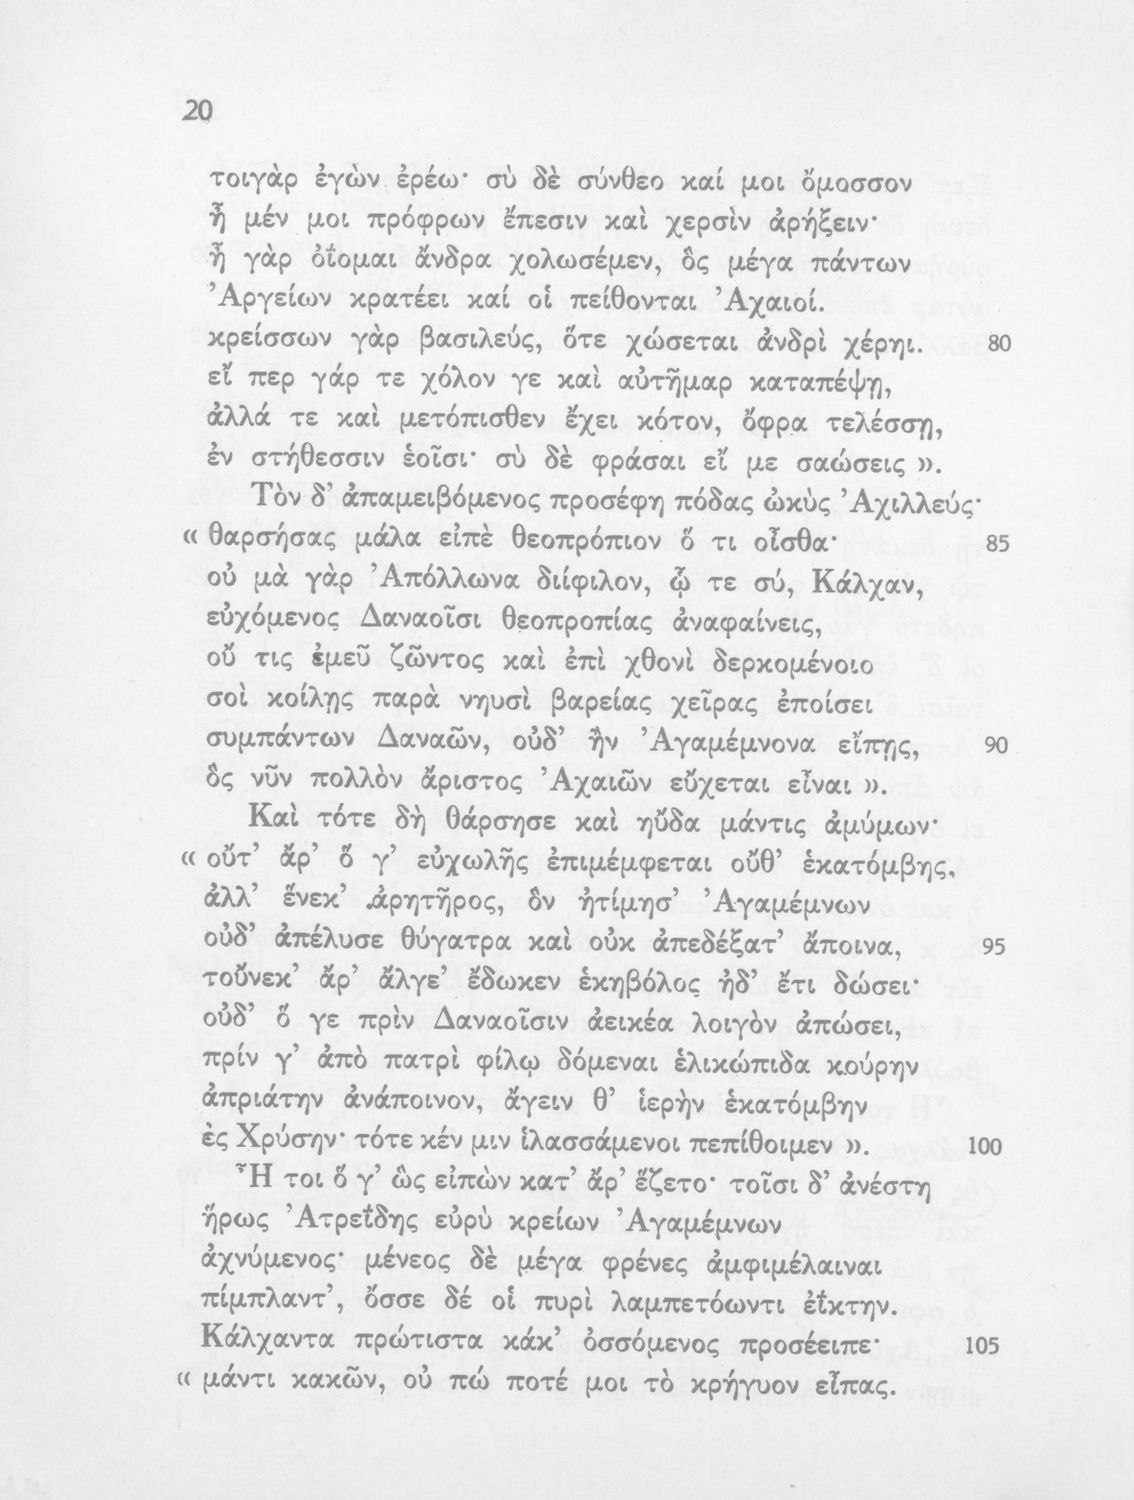 20
τοιγὰρ ἐγὼν ἐρέω· σὺ δὲ σύνθεο καί μοι ὄμοσσον
ἦ μέν μοι πρόφρων ἔπεσιν καὶ χερσὶν ἀρήξειν·
ἦ γὰρ ὀΐομαι ἄνδρα χολωσέμεν, ὃς μέγα πάντων
Ἀργείων κρατέει καί οἱ πείθονται Ἀχαιοί.
κρείσσων γὰρ βασιλεύς, ὅτε χώσεται ἀνδρὶ χέρηι. 80
εἴ περ γάρ τε χόλον γε καὶ αὐτῆμαρ καταπέψῃ,
ἀλλά τε καὶ μετόπισθεν ἔχει κότον, ὄφρα τελέσσῃ,
ἐν στήθεσσιν ἑοῖσι· σὺ δὲ φράσαι εἴ με σαώσεις ».
Τὸν δ’ ἀπαμειβόμενος προσέφη πόδας ὠκὺς Ἀχιλλεύς·
« θαρσήσας μάλα εἰπὲ θεοπρόπιον ὅ τι οἶσθα· 85
οὐ μὰ γὰρ Ἀπόλλωνα διίφιλον, ᾧ τε σύ, Κάλχαν,
εὐχόμενος Δαναοῖσι θεοπροπίας ἀναφαίνεις,
οὔ τις ἐμεῦ ζῶντος καὶ ἐπὶ χθονὶ δερκομένοιο
σοὶ κοίλῃς παρὰ νηυσὶ βαρείας χεῖρας ἐποίσει
συμπάντων Δαναῶν, οὐδ’ ἢν Ἀγαμέμνονα εἴπῃς, 90
ὃς νῦν πολλὸν ἄριστος Ἀχαιῶν εὔχεται εἶναι ».
Καὶ τότε δὴ θάρσησε καὶ ηὔδα μάντις ἀμύμων·
« οὔτ’ ἄρ’ ὅ γ’ εὐχωλῆς ἐπιμέμφεται οὔθ’ ἑκατόμβης,
ἀλλ’ ἕνεκ’ ἀρητῆρος, ὃν ἠτίμησ’ Ἀγαμέμνων
οὐδ’ ἀπέλυσε θύγατρα καὶ οὐκ ἀπεδέξατ’ ἄποινα, 95
τοὔνεκ’ ἄρ’ ἄλγε’ ἔδωκεν ἑκηβόλος ἠδ’ ἔτι δώσει·
οὐδ’ ὅ γε πρὶν Δαναοῖσιν ἀεικέα λοιγὸν ἀπώσει,
πρίν γ’ ἀπὸ πατρὶ φίλῳ δόμεναι ἑλικώπιδα κούρην
ἀπριάτην ἀνάποινον, ἄγειν θ’ ἱερὴν ἑκατόμβην
ἐς Χρύσην· τότε κέν μιν ἱλασσάμενοι πεπίθοιμεν ». 100
Ἦ τοι ὅ γ’ ὣς εἰπὼν κατ’ ἄρ’ ἕζετο· τοῖσι δ’ ἀνέστη
ἥρως Ἀτρεΐδης εὐρὺ κρείων Ἀγαμέμνων
ἀχνύμενος· μένεος δὲ μέγα φρένες ἀμφιμέλαιναι
πίμπλαντ’, ὄσσε δέ οἱ πυρὶ λαμπετόωντι ἐΐκτην.
Κάλχαντα πρώτιστα κάκ’ ὀσσόμενος προσέειπε· 105
« μάντι κακῶν, οὐ πώ ποτέ μοι τὸ κρήγυον εἶπας.